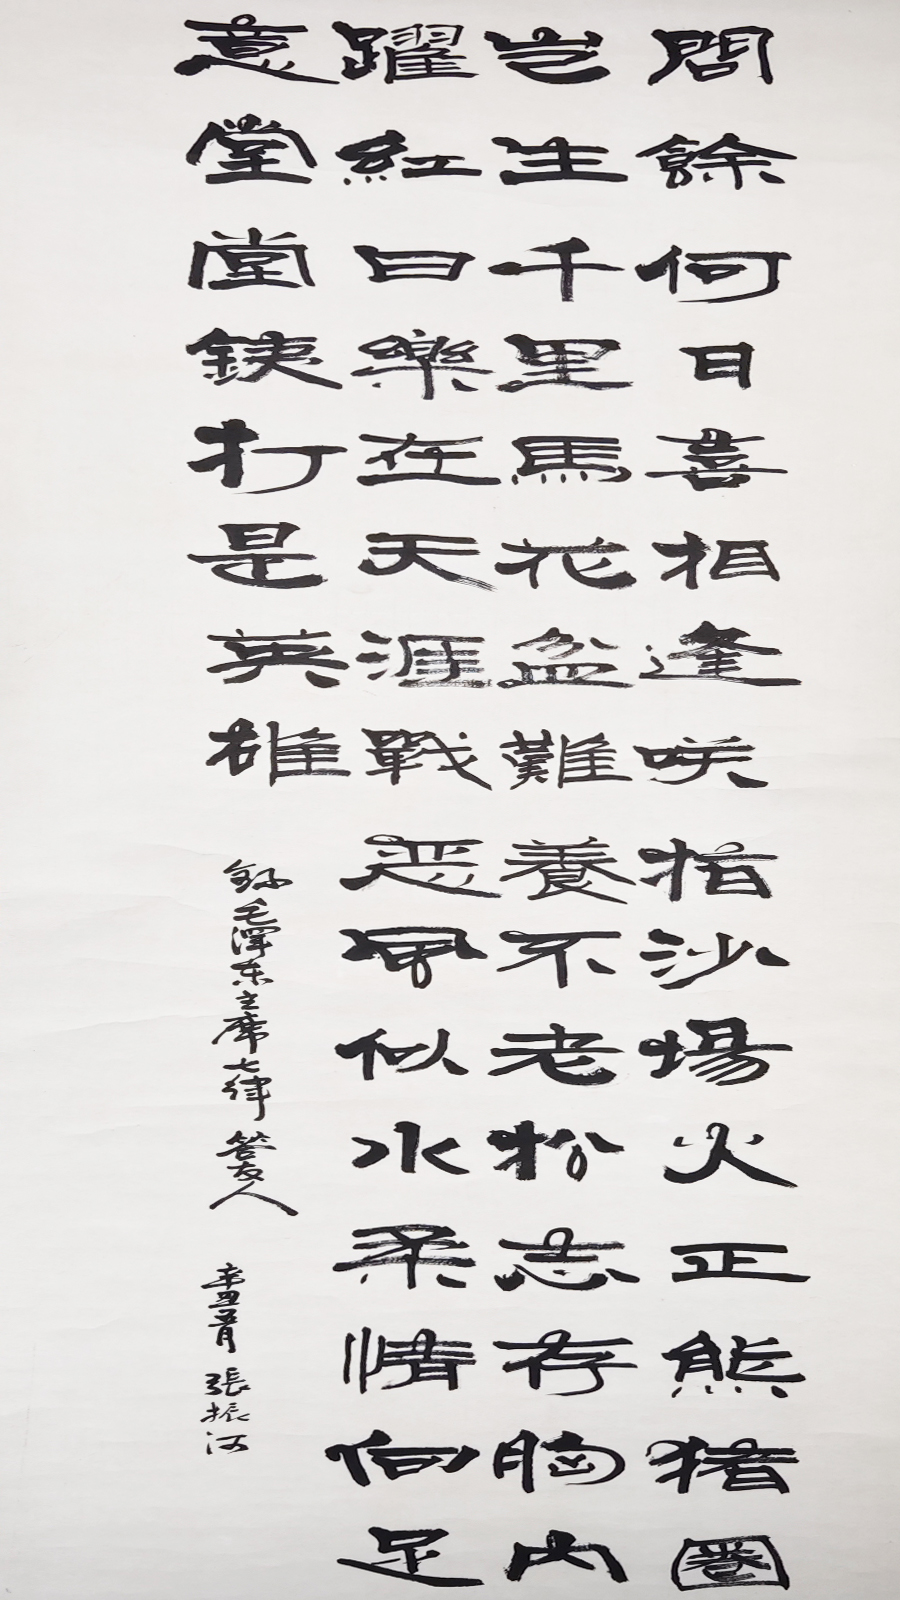 問餘何日喜相逢咲指沙場火正熊猪圈
豈生千里馬花盆難養不老松志存胸内
躍紅日樂在天涯戰恶風似水柔情向足
意堂堂銕打是英雄
錄毛澤东主席七律答友人
辛丑月張振河